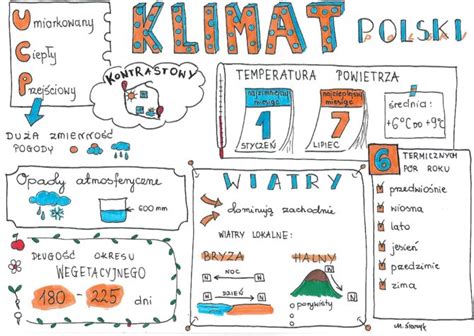 Umiarkowany
Ciepły
Przejściowy
KLIMAT POLSKI
KONTRASTOWY
DUŻA ZMIENNOŚĆ
POGODY
TEMPERATURA POWIETRZA
najzimniejszy
miesiąc
1
STYCZEŃ
najcieplejszy
miesiąc
7
LIPIEC
średnia:
+6°C do +9°C
Opady atmosferyczne
600 mm
WIATRY
dominują zachodnie
WIATRY LOKALNE:
BRYZA
NOC
N
W
HALNY
N
W
porywisty
6 TERMICZNYCH
PÓR ROKU
przedwiośnie
wiosna
lato
jesień
przedzimie
zima
DŁUGOŚĆ OKRESU
WEGETACYJNEGO
180 - 225 dni